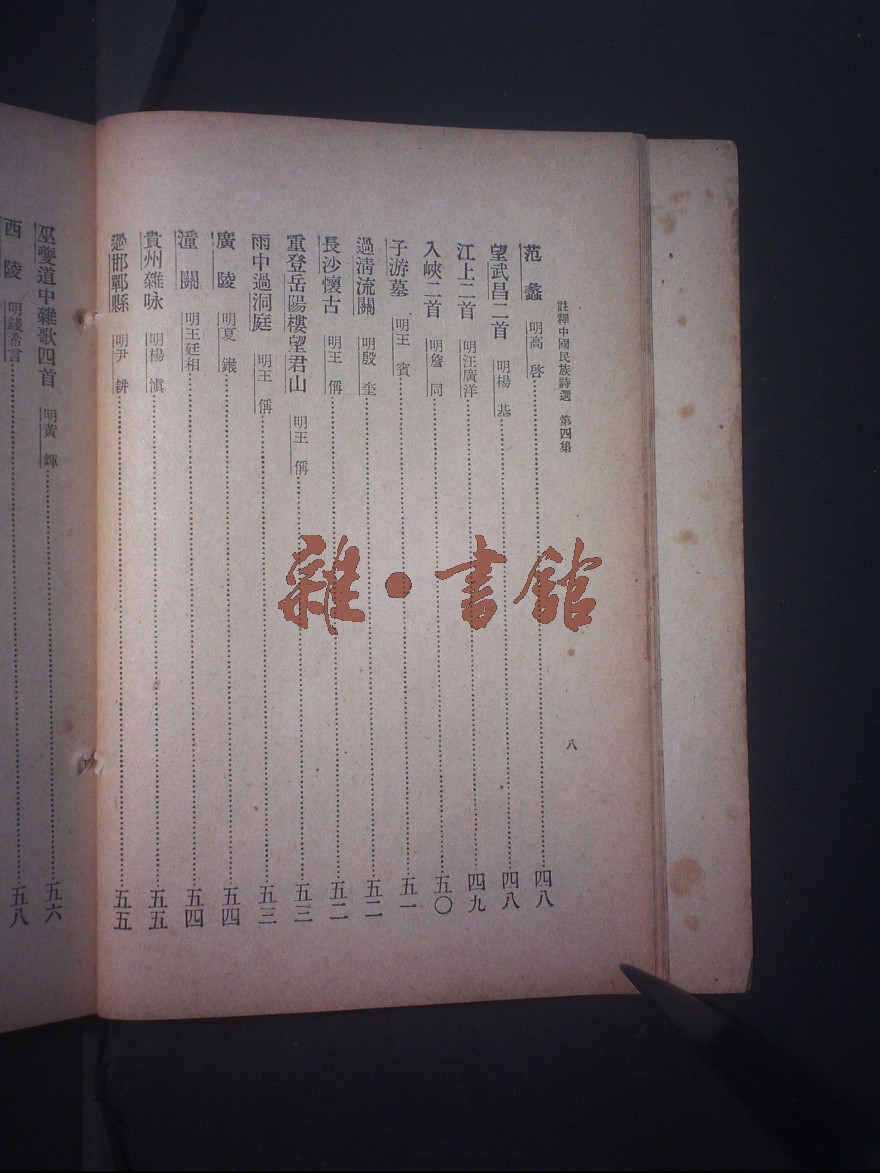 註釋中國民族詩選 第四集
八
范蠡 明高啓 四八
望武昌二首 明楊基 四八
江上二首 明汪廣洋 四九
入峽二首 明詹同 五〇
子游墓 明王賓 五一
過清流關 明殷奎 五二
長沙懷古 明王偁 五二
重登岳陽樓望君山 明王偁 五三
雨中過洞庭 明王偁 五三
廣陵 明夏鍭 五四
潼關 明王廷相 五四
貴州雜咏 明楊慎 五五
過邯鄲縣 明尹耕 五五
巫夔道中雜歌四首 明黃輝 五六
西陵 明錢希言 五八
雜·書館